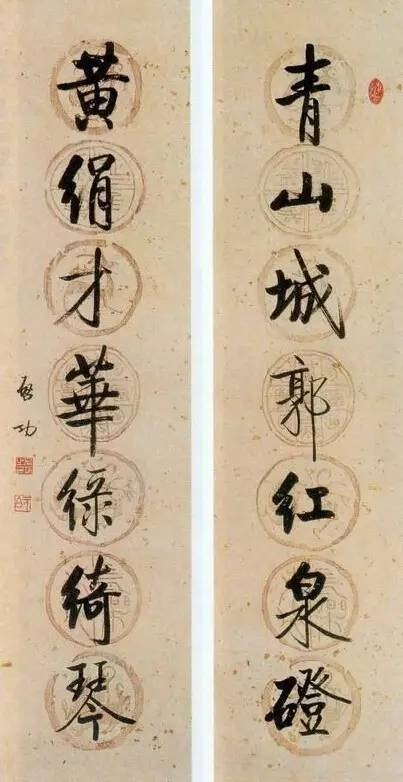 青山城郭红泉磴
黃絹才華綠綺琴
啟功